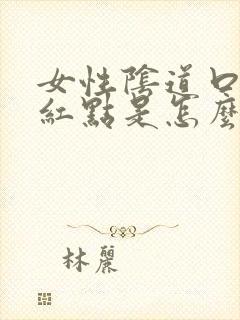 女性陰道口
紅點是怎麼
林麗